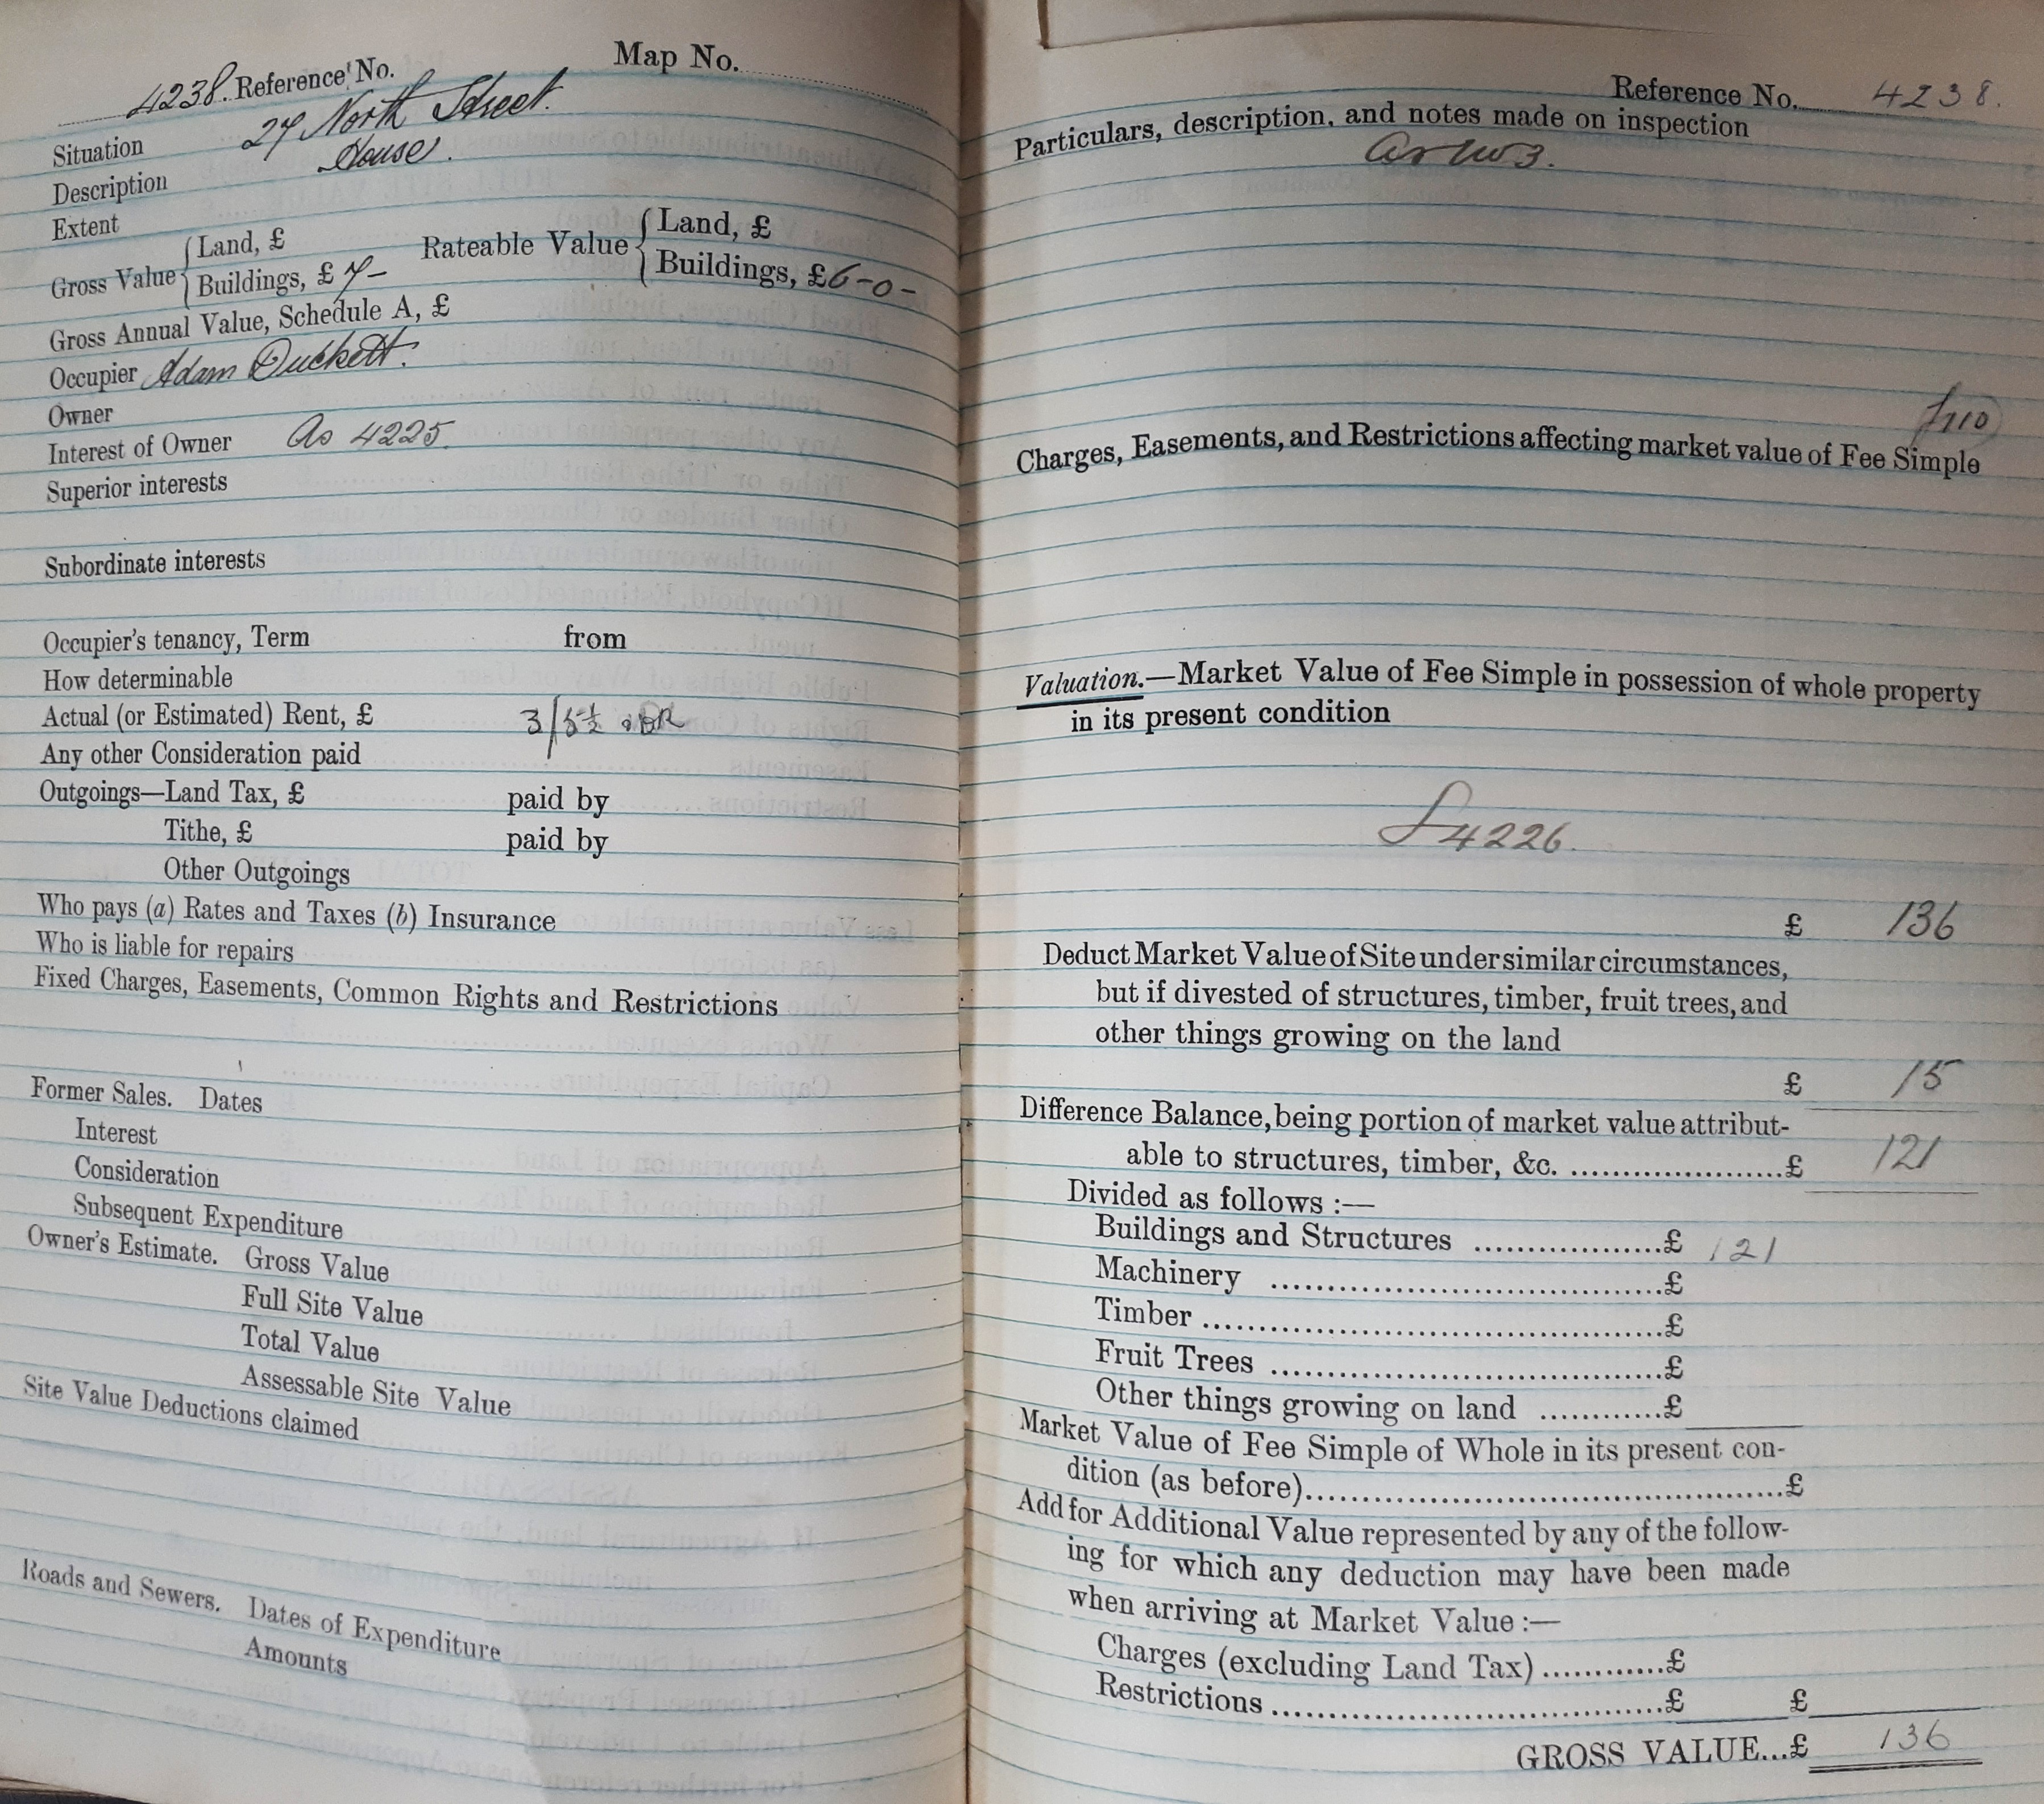 Map No.
4238. Reference No.
Situation 27 North Street.
Description House.
Extent
Gross Value { Land, £ Rateable Value { Land, £
Buildings, £ 7- Buildings, £ 6-0-
Gross Annual Value, Schedule A, £
Occupier Adam Duckett.
Owner
Interest of Owner As 4225.
Superior interests
Subordinate interests
Occupier's tenancy, Term from
How determinable
Actual (or Estimated) Rent, £ 3/5½
Any other Consideration paid
Outgoings—Land Tax, £ paid by
Tithe, £ paid by
Other Outgoings
Who pays (a) Rates and Taxes (b) Insurance
Who is liable for repairs
Fixed Charges, Easements, Common Rights and Restrictions
Former Sales. Dates
Interest
Consideration
Subsequent Expenditure
Owner's Estimate. Gross Value
Full Site Value
Total Value
Assessable Site Value
Site Value Deductions claimed
Roads and Sewers. Dates of Expenditure
Amounts
Reference No. 4238.
Particulars, description, and notes made on inspection
Charges, Easements, and Restrictions affecting market value of Fee Simple
Valuation.—Market Value of Fee Simple in possession of whole property
in its present condition
4226.
£ 136
Deduct Market Value of Site under similar circumstances,
but if divested of structures, timber, fruit trees, and
other things growing on the land
£ 15
Difference Balance, being portion of market value attribut-
able to structures, timber, &c. ......................£ 121
Divided as follows :—
Buildings and Structures ...................£ 121
Machinery .......................................£
Timber ..............................................£
Fruit Trees .......................................£
Other things growing on land ............£
Market Value of Fee Simple of Whole in its present con-
dition (as before)................................................£
Add for Additional Value represented by any of the follow-
ing for which any deduction may have been made
when arriving at Market Value :—
Charges (excluding Land Tax) ............£
Restrictions .......................................£ £
GROSS VALUE...£ 136